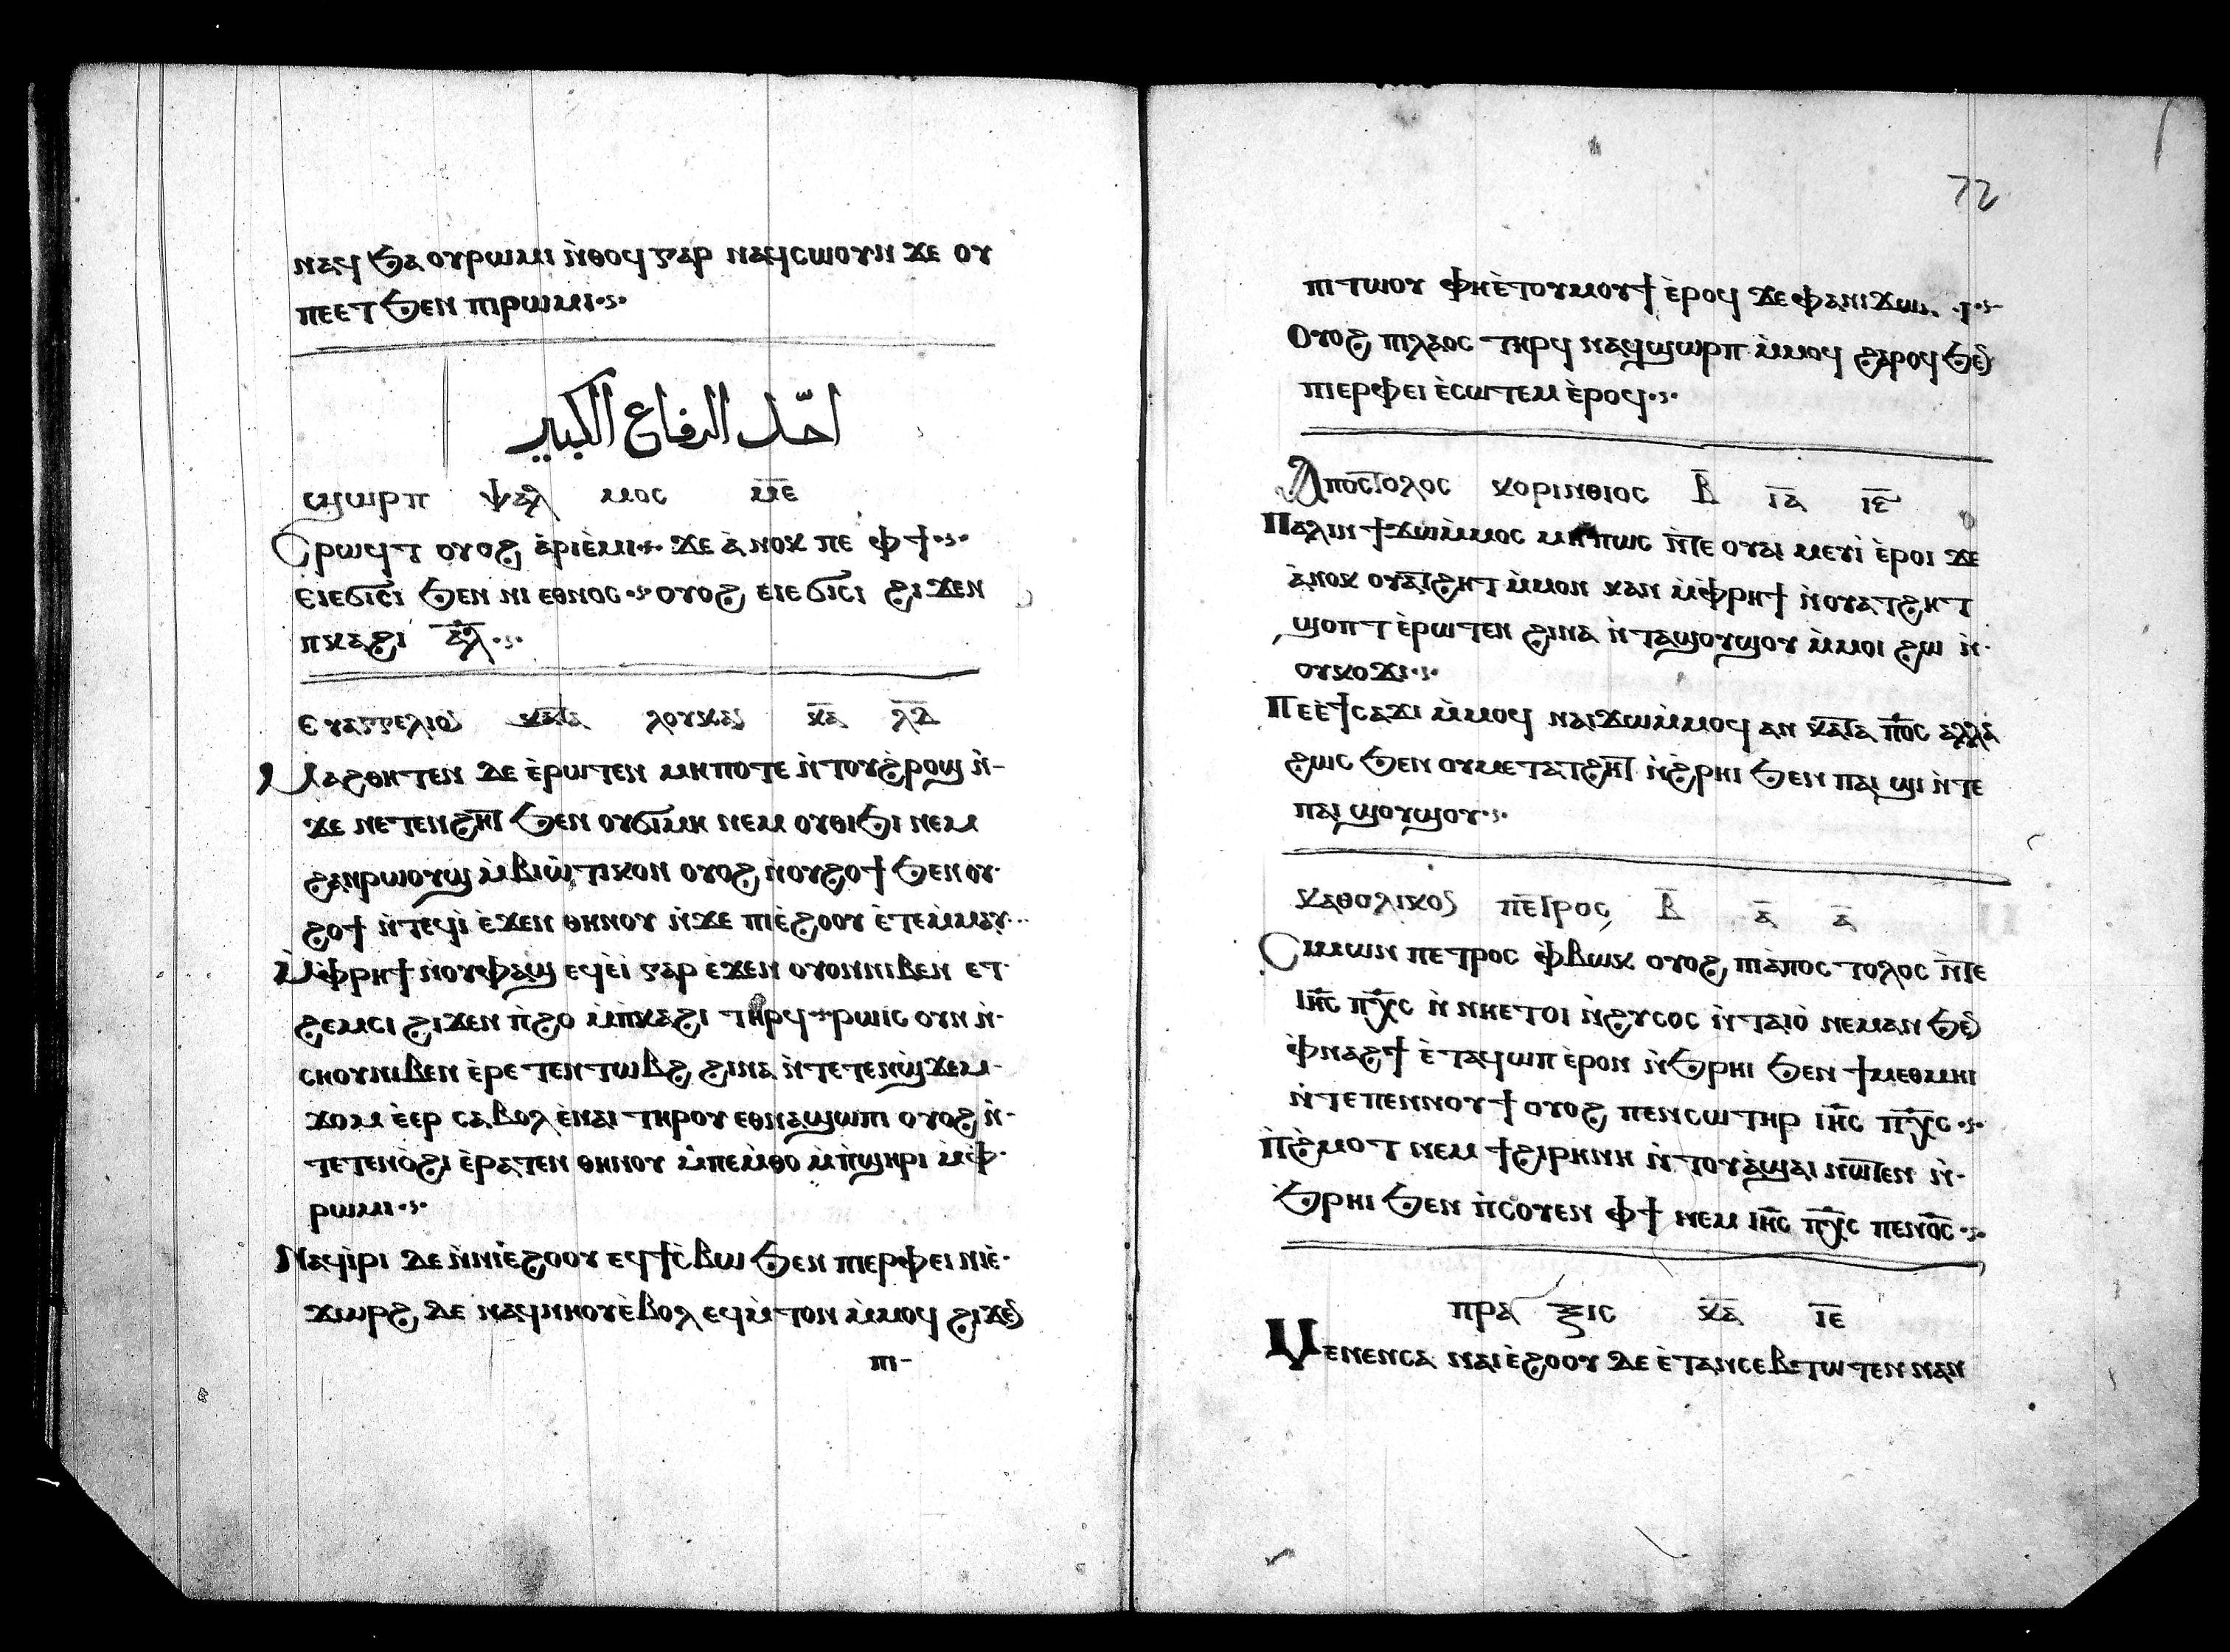 ⲛⲁϥ ϧⲁ ⲟⲩⲣⲱⲙⲓ ⲛ̀ⲑⲟϥ ⲅⲁⲣ ⲛⲁϥⲥⲱⲟⲩⲛ ϫⲉ ⲟⲩ
ⲡⲉⲉⲧ ϧⲉⲛ ⲡⲓⲣⲱⲙⲓ
احد الرفاع الكبير
ϣⲱⲣⲡ ⲯⲁⲗ ⲙⲟⲥ ⲙ̅ⲉ̅
Ⲥⲣⲱϥⲧ ⲟⲩⲟϩ ⲁ̀ⲣⲓⲉ̀ⲙⲓ ϫⲉ ⲁ̀ⲛⲟⲕ ⲡⲉ ⲫϯ
ⲉⲓⲉϭⲓⲥⲓ ϧⲉⲛ ⲛⲓ ⲉⲑⲛⲟⲥ ⲟⲩⲟϩ ⲉⲓⲉϭⲓⲥⲓ ϩⲓϫⲉⲛ
ⲡⲕⲁϩⲓ ⲁ̅ⲗ̅
ⲉⲩⲁⲅⲅⲉⲗⲓⲟⲛ ⲕⲁⲧⲁ ⲗⲟⲩⲕⲁⲛ ⲕ̅ⲁ̅ ⲗ̅ⲇ̅
Ⲙⲁϩⲑⲏⲧⲉⲛ ⲇⲉ ⲉ̀ⲣⲱⲧⲉⲛ ⲙⲏⲡⲟⲧⲉ ⲛ̀ⲧⲟⲩϩ̀ⲣⲟϣ ⲛ̀-
ϫⲉ ⲛⲉⲧⲉⲛϩⲏⲧ ϧⲉⲛ ⲟⲩϭⲓⲙⲏ ⲛⲉⲙ ⲟⲩⲑⲓϧⲓ ⲛⲉⲙ
ϩⲁⲛⲣⲱⲟⲩϣ ⲙ̀ⲃⲓⲱ̀ⲧⲓⲕⲟⲛ ⲟⲩⲟϩ ⲛ̀ⲟⲩϩⲟϯ ϧⲉⲛ ⲟⲩ-
ϩⲟϯ ⲛ̀ⲧⲉϥⲓ̀ ⲉ̀ϫⲉⲛ ⲑⲏⲛⲟⲩ ⲛ̀ϫⲉ ⲡⲓⲉ̀ϩⲟⲟⲩ ⲉ̀ⲧⲉⲙ̀ⲙⲁⲩ
Ⲙ̀ⲫⲣⲏϯ ⲛ̀ⲟⲩⲫⲁϣ ⲉϥⲉ̀ⲓ̀ ⲅⲁⲣ ⲉ̀ϫⲉⲛ ⲟⲩⲟⲛⲛⲓⲃⲉⲛ ⲉⲧ-
ϩⲉⲙⲥⲓ ϩⲓϫⲉⲛ ⲡ̀ϩⲟ ⲙ̀ⲡⲕⲁϩⲓ ⲧⲏⲣϥ ⲣⲱⲓⲥ ⲟⲩⲛ ⲛ̀-
ⲥⲏⲟⲩⲛⲓⲃⲉⲛ ⲉ̀ⲣⲉ ⲧⲉⲛⲧⲱⲃϩ ϩⲓⲛⲁ ⲛ̀ⲧⲉⲧⲉⲛϣ̀ϫⲉⲙ-
ϫⲟⲙ ⲉ̀ⲉⲣ ⲥⲁⲃⲟⲗ ⲉ̀ⲛⲁⲓ ⲧⲏⲣⲟⲩ ⲉⲑⲛⲁϣⲱⲡⲓ ⲟⲩⲟϩ ⲛ̀-
ⲧⲉⲧⲉⲛⲟ̀ϩⲓ ⲉ̀ⲣⲁⲧⲉⲛ ⲑⲏⲛⲟⲩ ⲙ̀ⲡⲉⲙ̀ⲑⲟ ⲙ̀ⲡ̀ϣⲏⲣⲓ ⲙ̀ⲫ̀-
ⲣⲱⲙⲓ
Ⲛⲁϥⲓ̀ⲣⲓ ⲇⲉ ⲛ̀ⲛⲓⲉ̀ϩⲟⲟⲩ ⲉϥϯⲥ̀ⲃⲱ ϧⲉⲛ ⲡⲓⲉⲣⲫⲉⲓ ⲛⲓⲉ̀-
ϫⲱⲣϩ ⲇⲉ ⲛⲁϥⲛⲏⲟⲩ ⲉ̀ⲃⲟⲗ ⲉϥⲙ̀ⲧⲟⲛ ⲙ̀ⲙⲟϥ ϩⲓϫⲉⲛ
ⲡⲓ-
72
ⲡⲓⲧⲱⲟⲩ ⲫⲏⲉ̀ⲧⲟⲩⲙⲟⲩϯ ⲉ̀ⲣⲟϥ ϫⲉ ⲫⲁⲛⲓϫⲱ
Ⲟⲩⲟϩ ⲡⲓⲗⲁⲟⲥ ⲧⲏⲣϥ ⲛⲁϥϣⲱⲣⲡ ⲙ̀ⲙⲟϥ ϩⲁⲣⲟϥ ϧⲉⲛ
ⲡⲓⲉⲣⲫⲉⲓ ⲉ̀ⲥⲱⲧⲉⲙ ⲉ̀ⲣⲟϥ
Ⲁⲡⲟⲥⲧⲟⲗⲟⲥ ⲕⲟⲣⲓⲛⲑⲓⲟⲥ ⲃ̅ ⲓ̅ⲁ̅ ⲓ̅ⲉ̅
Ⲡⲁⲗⲓⲛ ϯϫⲱⲙ̀ⲙⲟⲥ ⲙⲏⲡⲱⲥ ⲛ̀ⲧⲉ ⲟⲩⲁⲓ ⲙⲉⲩⲓ̀ ⲉ̀ⲣⲟⲓ ϫⲉ
ⲁ̀ⲛⲟⲕ ⲟⲩⲁⲧϩⲏⲧ ⲙ̀ⲙⲟⲛ ⲕⲁⲛ ⲙ̀ⲫⲣⲏϯ ⲛ̀ⲟⲩⲁⲧϩⲏⲧ
ϣⲟⲡⲧ ⲉ̀ⲣⲱⲧⲉⲛ ϩⲓⲛⲁ ⲛ̀ⲧⲁϣⲟⲩϣⲟⲩ ⲙ̀ⲙⲟⲓ ϩⲱ ⲛ̀-
ⲟⲩⲕⲟϫⲓ
Ⲡⲉⲉ̀ϯⲥⲁϫⲓ ⲙ̀ⲙⲟϥ ⲛⲁⲓϫⲱⲙ̀ⲙⲟϥ ⲁⲛ ⲕⲁⲧⲁ ⲡ̅ⲟ̅ⲥ̅ ⲁⲗⲗⲁ
ϩⲱⲥ ϧⲉⲛ ⲟⲩⲙⲉⲧⲁⲧϩⲏⲧ ⲛ̀ϩ̀ⲣⲏⲓ ϧⲉⲛ ⲡⲁⲓ ϣⲓ ⲛ̀ⲧⲉ
ⲡⲁⲓ ϣⲟⲩϣⲟⲩ
ⲕⲁⲑⲟⲗⲓⲕⲟⲛ ⲡⲉⲧⲣⲟⲥ ⲃ̅ ⲁ̅ ⲁ̅
Ⲥⲓⲙⲱⲛ ⲡⲉⲧⲣⲟⲥ ⲫ̀ⲃⲱⲕ ⲟⲩⲟϩ ⲡⲓⲁ̀ⲡⲟⲥⲧⲟⲗⲟⲥ ⲛ̀ⲧⲉ
ⲓ̅ⲏ̅ⲥ̅ ⲡ̅ⲭ̅ⲥ̅ ⲛ̀ⲛⲏⲉⲧⲟⲓ ⲛ̀ϩⲩⲥⲟⲥ ⲛ̀ⲧⲁⲓⲟ̀ ⲛⲉⲙⲁⲛ ϧⲉⲛ
ⲫ̀ⲛⲁϩϯ ⲉ̀ⲧⲁϥⲱⲡ ⲉ̀ⲣⲟⲛ ⲛ̀ϧⲣⲏⲓ ϧⲉⲛ ϯⲙⲉⲑⲙⲏⲓ
ⲛ̀ⲧⲉ ⲡⲉⲛⲛⲟⲩϯ ⲟⲩⲟϩ ⲡⲉⲛⲥⲱⲧⲏⲣ ⲓ̅ⲏ̅ⲥ̅ ⲡ̅ⲭ̅ⲥ̅
Ⲡ̀ϩ̀ⲙⲟⲧ ⲛⲉⲙ ϯϩⲓⲣⲏⲛⲏ ⲛ̀ⲧⲟⲩⲁ̀ϣⲁⲓ ⲛⲱⲧⲉⲛ ⲛ̀-
ϧⲣⲏⲓ ϧⲉⲛ ⲡ̀ⲥⲟⲩⲉⲛ ⲫϯ ⲛⲉⲙ ⲓ̅ⲏ̅ⲥ̅ ⲡ̅ⲭ̅ⲥ̅ ⲡⲉⲛⲟ̅ⲥ̅
ⲡⲣⲁ ⲝⲓⲥ ⲕ̅ⲁ̅ ⲓ̅ⲉ̅
Ⲙⲉⲛⲉⲛⲥⲁ ⲛⲁⲓⲉ̀ϩⲟⲟⲩ ⲇⲉ ⲉ̀ⲧⲁⲛⲥⲉⲃⲧⲱⲧⲉⲛ ⲛⲁⲛ